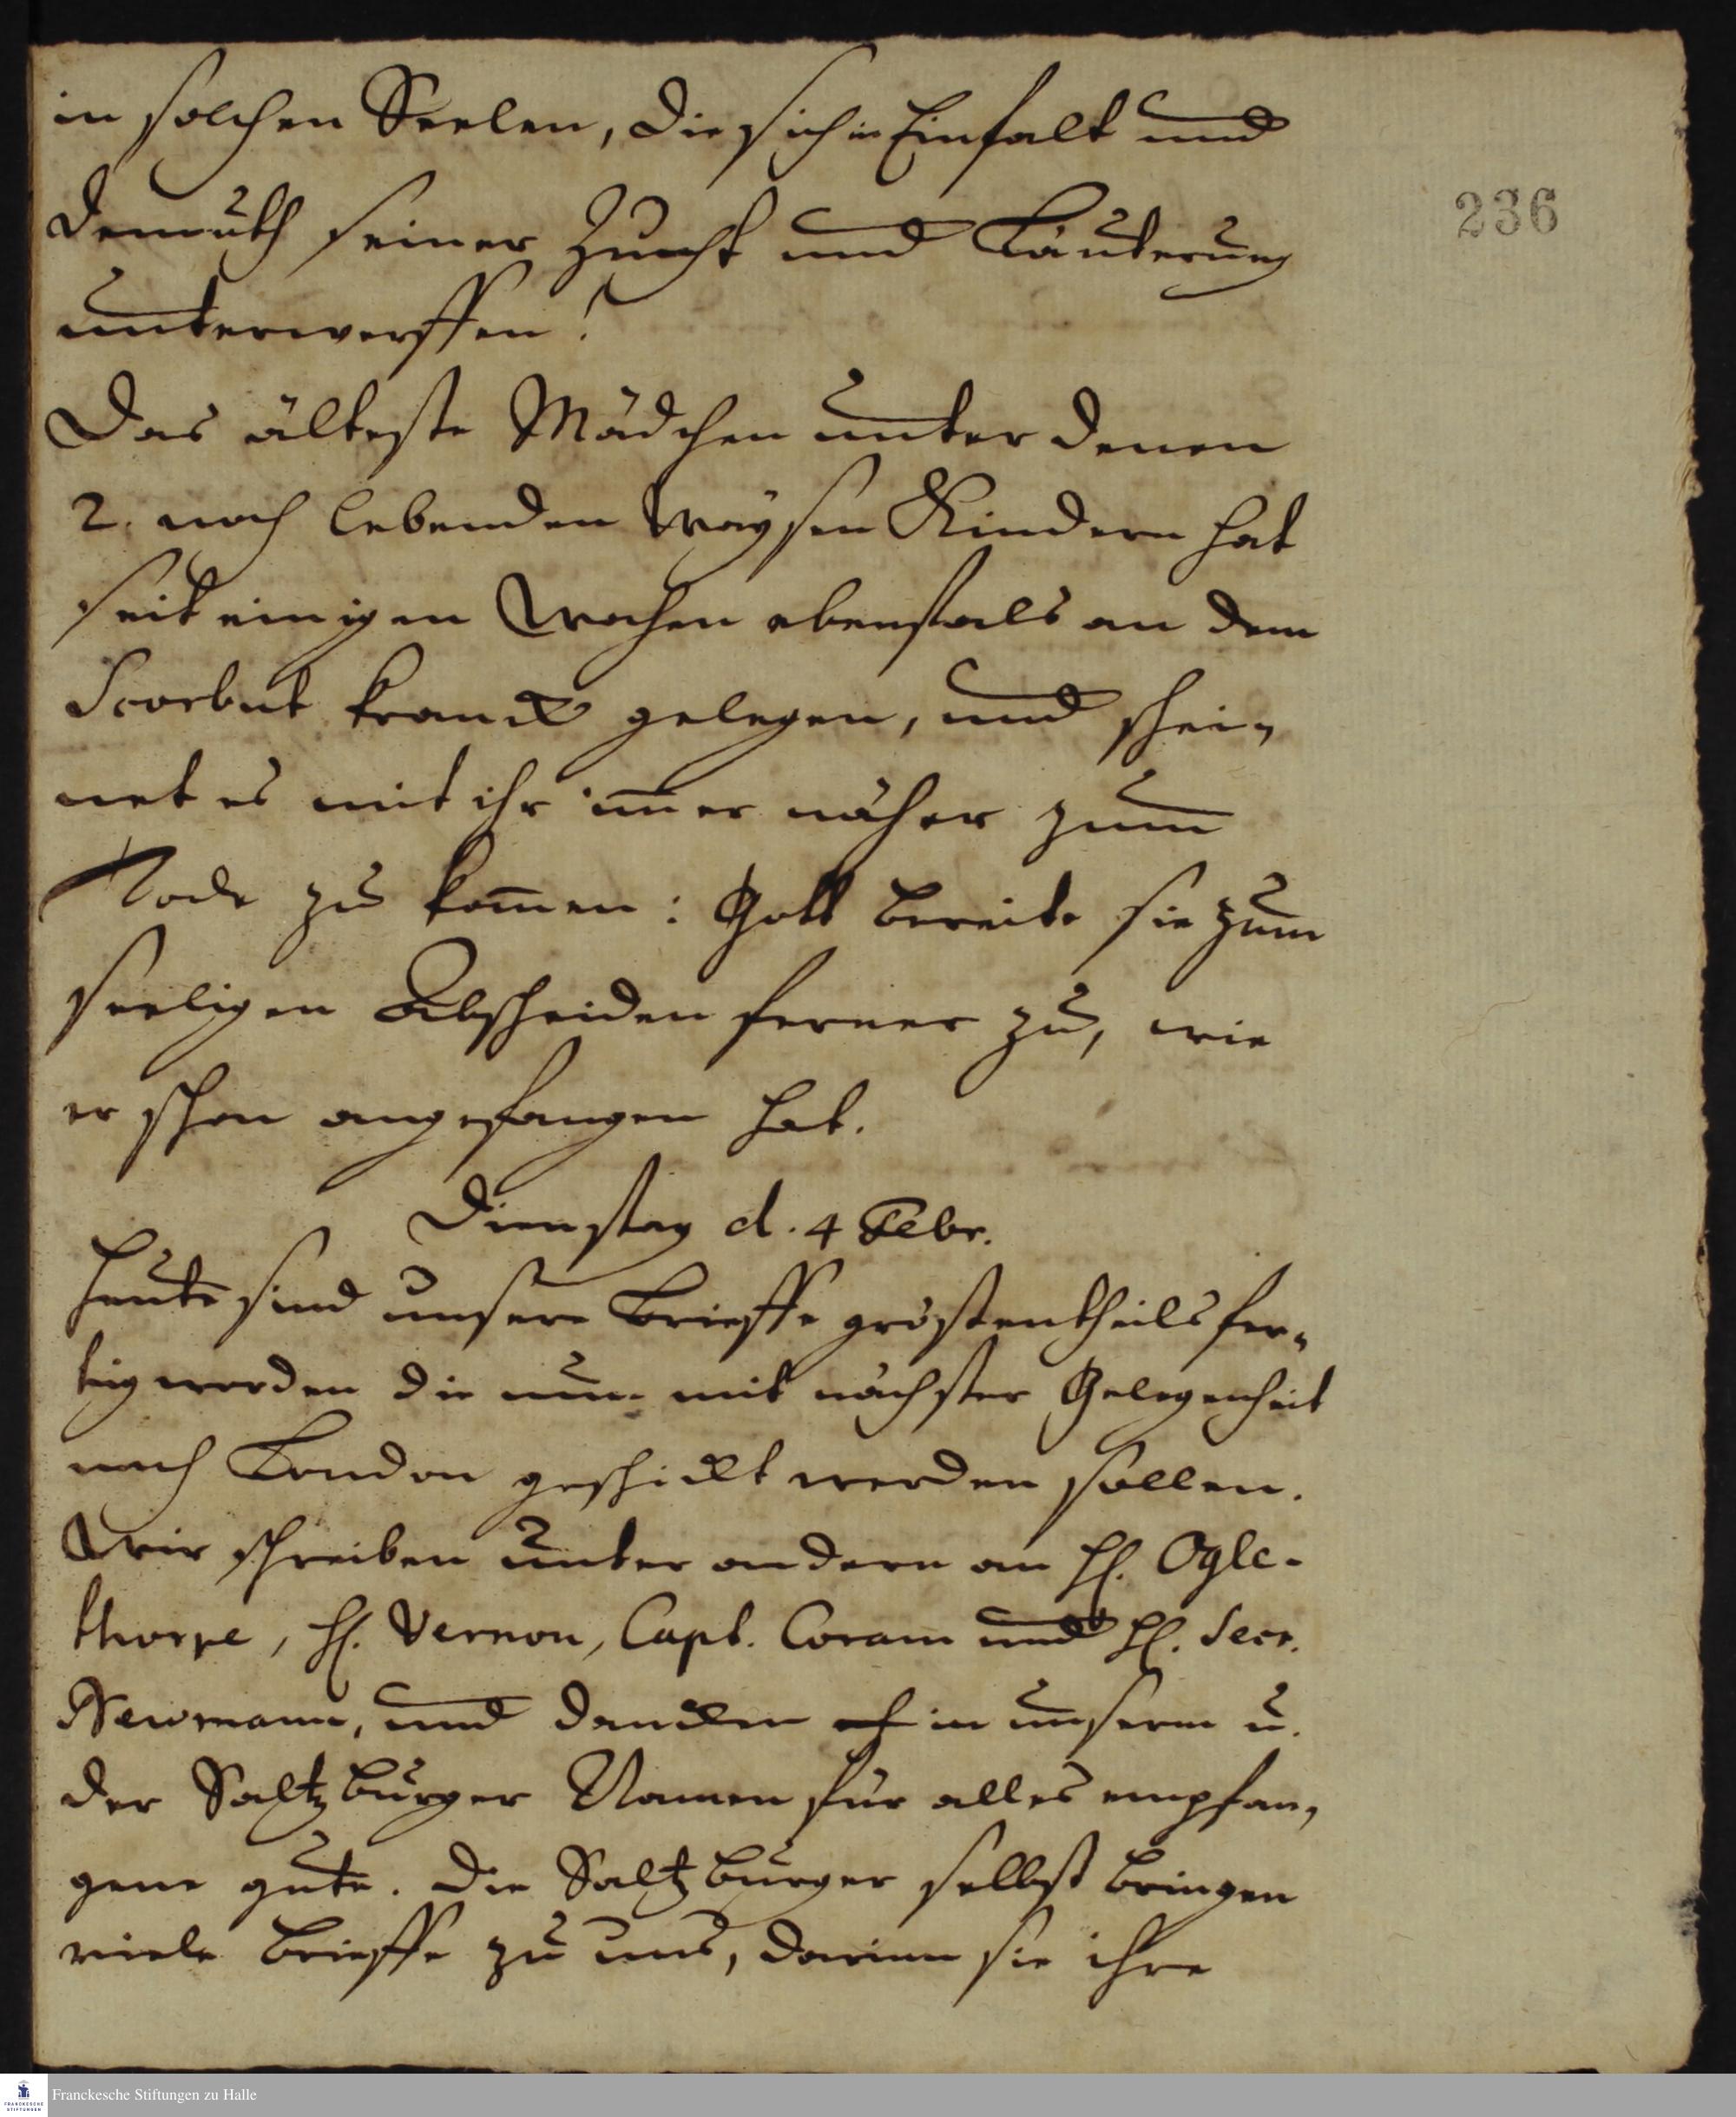 in solchen Seelen, die sich in Einfalt und
236
Demuth seiner Zucht und Läuterung
unterwerffen!
Das älteste Mädchen unter denen
2. noch lebenden Waysen Kindern hat
seit einigen Wochen ebenfals an dem
Scorbut kranck gelegen, und schei-
net es mit ihr im̄er näher zum
Tode zu kom̄en: Gott bereite sie zum
seeligen Abscheiden ferner zu, wie
er schon angefangen hat.
Dienstag d. 4 Febr.
Heute sind unsere Brieffe gröstentheils fer-
tig worden die nun mit nächster Gelegenheit
nach London geschickt werden sollen.
Wir schreiben unter andern an H. Ogle-
thorpe, H. Vernon, Capt. Coram und H. Secr.
Newmann, und dancken in unserm u.
der Saltzburger Namen für alles empfan-
gene gute. Die Saltzburger selbst bringen
viele Brieffe zu uns, darinn sie ihre
Franckesche Stiftungen zu Halle
FRANCKESCHE
STIFTUNGEN